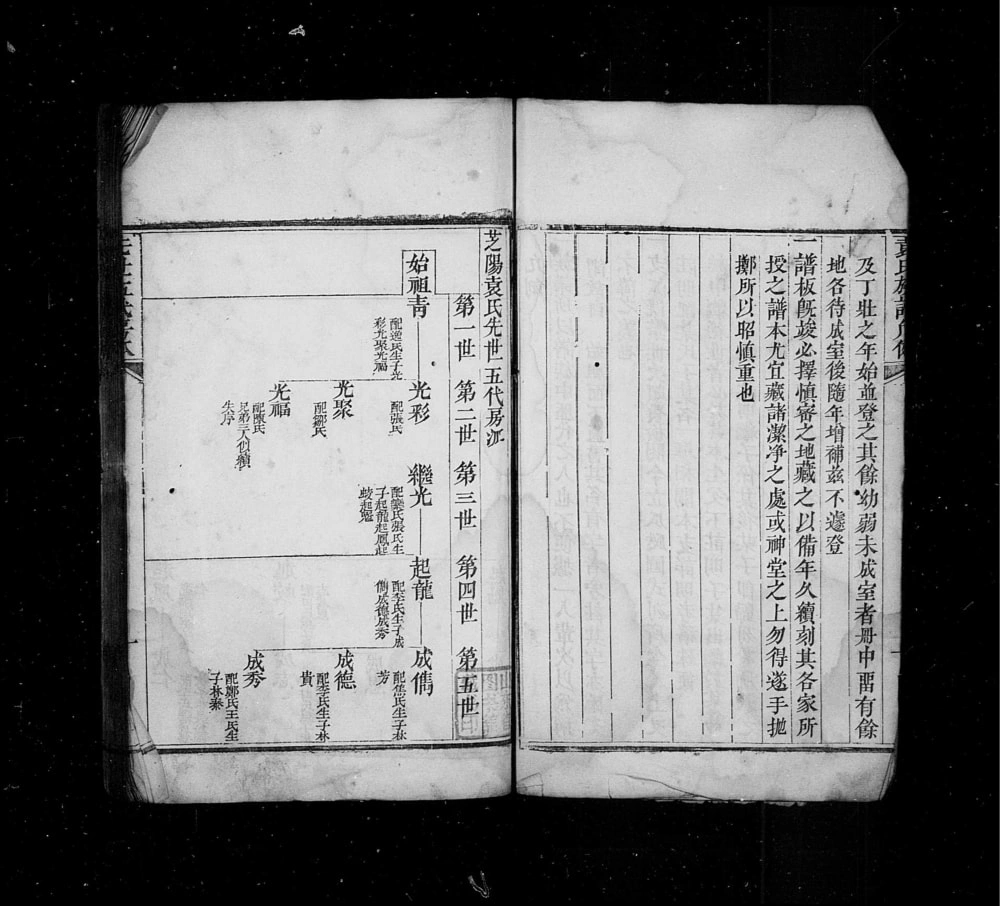 及丁壯之年始並登之其餘幼弱未成室者冊中畱有餘
地各待成室後隨年增補茲不遽登
一譜板旣竣必擇慎審之地藏之以備年久續刻其各家所
授之譜本尤宜藏諸潔淨之處或神堂之上勿得遂手拋
擲所以昭慎重也
芝陽袁氏先世五代房派
第一世 第二世 第三世 第四世 第五世
始祖青
配 氏生子光
彩光聚光福
光彩
配張氏
繼光
配 氏張氏生
子起龍起鳳起
蛟起鯤
起龍
配李氏生子成
儁成德成秀
成儁
配焦氏生子林
芳
光聚
配鄒氏
成德
配李氏生子林
貴
光福
配陳氏
兄弟三人似續
失序
成秀
配鄭氏王氏生
子林泰